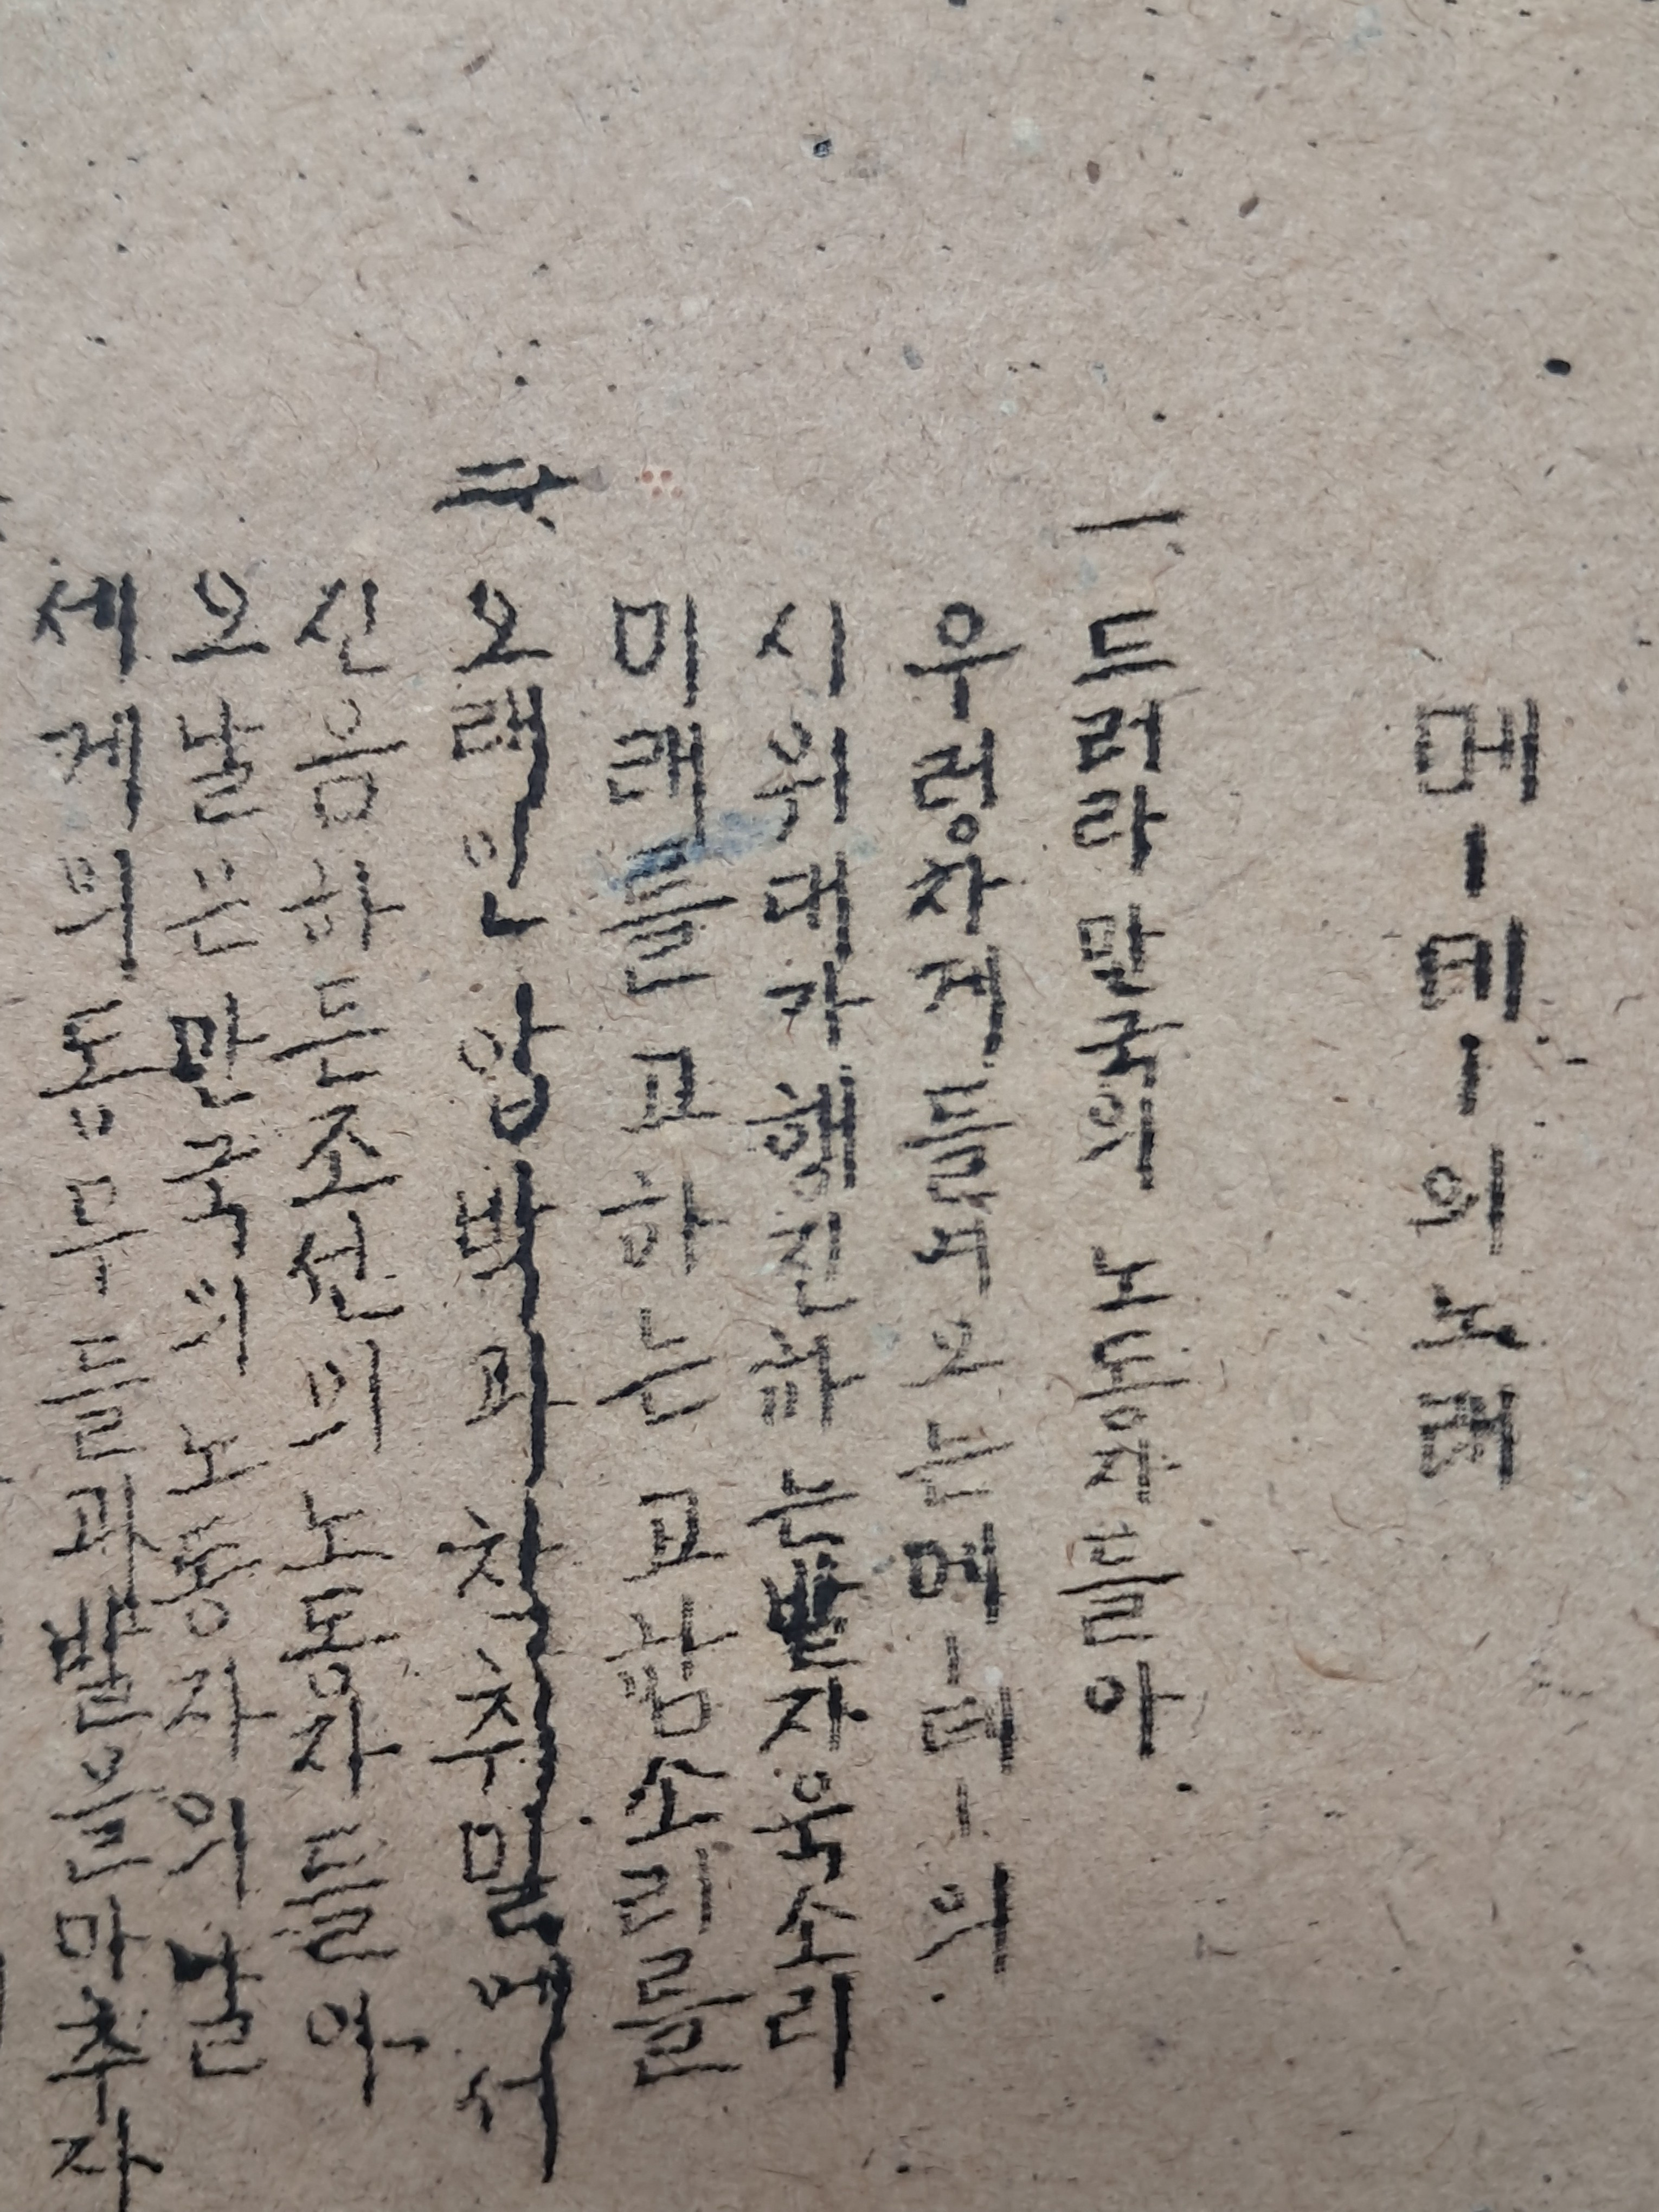 메ー데ー의노래
一 드러라 만국의 노동자들아
우렁차게 들녀오는메ー데ー의
시위대가행진하는발자욱소리
미래를고하는고함소리를
二 오래인압박과착취밑에서
신음하든조선의노동자들아
오날은만국의노동자의날
세게의동무들과발을마추자